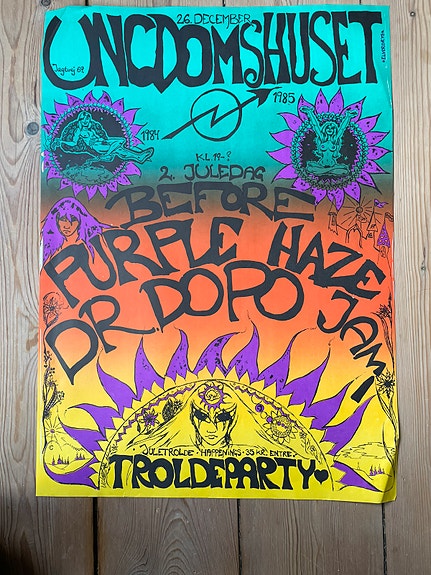 26. DECEMBER
UNGDOMSHUSET
Jagtvej 69
1984
1985
KL 19-?
2. JULEDAG
BEFORE
PURPLE HAZE
DR. DOPO JAM!
JULETROLDE · HAPPENINGS · 35 KR. ENTRE!
TROLDEPARTY